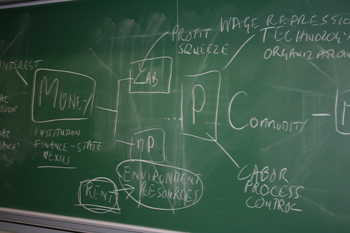 INTEREST
MONEY
INSTITUTION
FINANCE-STATE
NEXUS
LAB
PROFIT
SQUEEZE
MP
RENT
ENVIRONMENT
RESOURCES
P
WAGE REPRESSION
TECHNOLOGY
ORGANIZATION
COMMODITY
LABOR
PROCESS
CONTROL
M